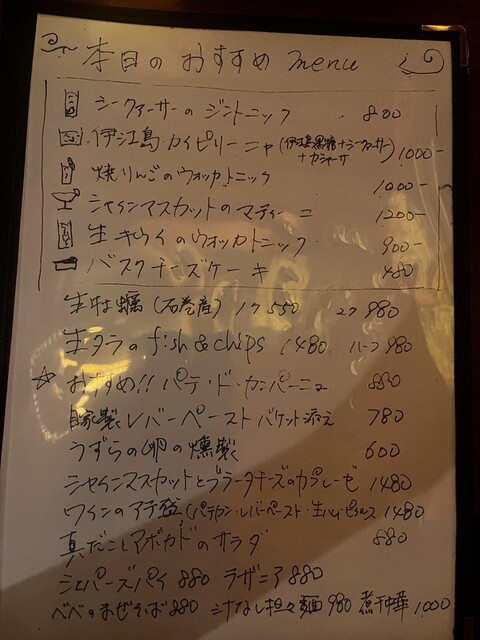 本日のおすすめ menu
シークァーサーのジントニック 800
伊江島カイピリーニャ(伊江島黒糖+シークァーサー+カシャーサ) 1000-
焼りんごのウォッカトニック 1000-
シャインマスカットのマティーニ 1200-
生キウイのウォッカトニック 900-
バスクチーズケーキ 480
生牡蠣(石巻産) 1ヶ 550 2ヶ 980
生タラのfish & chips 1480 ハーフ 980
☆ おすすめ!! パテ・ド・カンパーニュ 880
自家製レバーペースト バケット添え 780
うずらの卵の燻製 600
シャインマスカットとブラータチーズのカプレーゼ 1480
ワインのアテ盛(パテカン・レバーペースト・生ハム・ピクルス 1480
真だことアボカドのサラダ 880
シェパーズパイ 880 ラザニア 880
べべのまぜそば 880 汁なし担々麺 980 煮干中華 1000